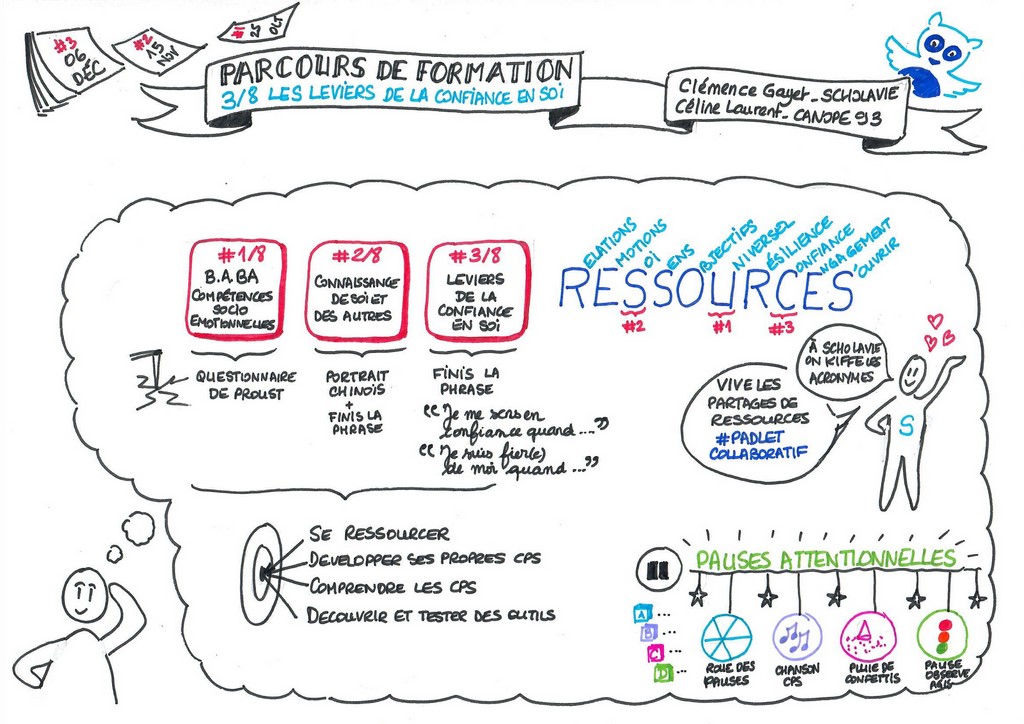 #3
06
DÉC
#2
15
NOV
#1
25
OCT
PARCOURS DE FORMATION
3/8 LES LEVIERS DE LA CONFIANCE EN SOI
Clémence Gayet - SCHOLAVIE
Céline Laurent - CANOPE 93
#1/8
B.A.BA
COMPÉTENCES
SOCIO
EMOTIONNELLES
#2/8
CONNAISSANCE
DE SOI ET
DES AUTRES
#3/8
LEVIERS
DE LA
CONFIANCE
EN SOI
ELATIONS
MOTIONS
OI
ENS
BJECTIFS
NIVERSEL
ÉSILIENCE
ONFIANCE
NGAGEMENT
'OUVRIR
RESSOURCES
#2
#1
#3
QUESTIONNAIRE
DE PROUST
PORTRAIT
CHINOIS
+
FINIS LA
PHRASE
FINIS LA
PHRASE
"Je me sens en
confiance quand ...."
"Je suis fier(e)
de moi quand ..."
À SCHOLAVIE
ON KIFFE LES
ACRONYMES
VIVE LES
PARTAGES DE
RESSOURCES
#PADLET
COLLABORATIF
S
SE RESSOURCER
DEVELOPPER SES PROPRES CPS
COMPRENDRE LES CPS
DECOUVRIR ET TESTER DES OUTILS
PAUSES ATTENTIONNELLES
A ...
B ...
C ...
D ...
ROUE DES
PAUSES
CHANSON
CPS
PLUIE DE
CONFETTIS
PAUSE
OBSERVE
AGIS